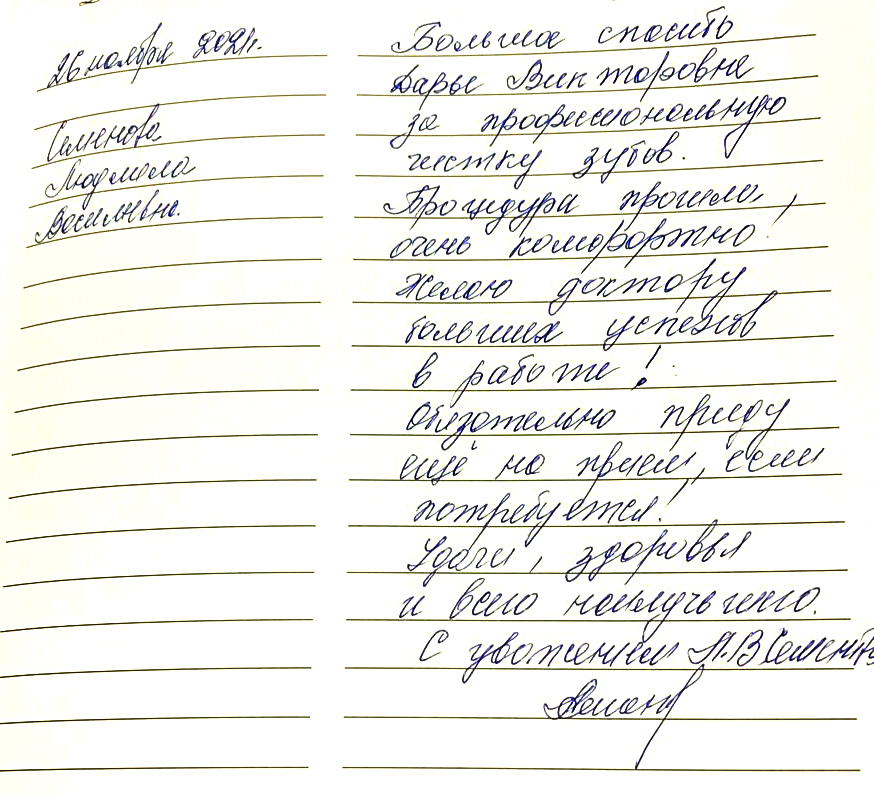 26 ноября 2021г.
Семенова
Людмила
Васильевна.
Большое спасибо
Дарье Викторовне
за профессиональную
чистку зубов.
Процедура прошла,
очень комфортно!
Желаю доктору
больших успехов
в работе!
Обязательно приду
ещё на прием, если
потребуется!
Удачи, здоровья
и всего наилучшего.
С уважением Л.В Семенова